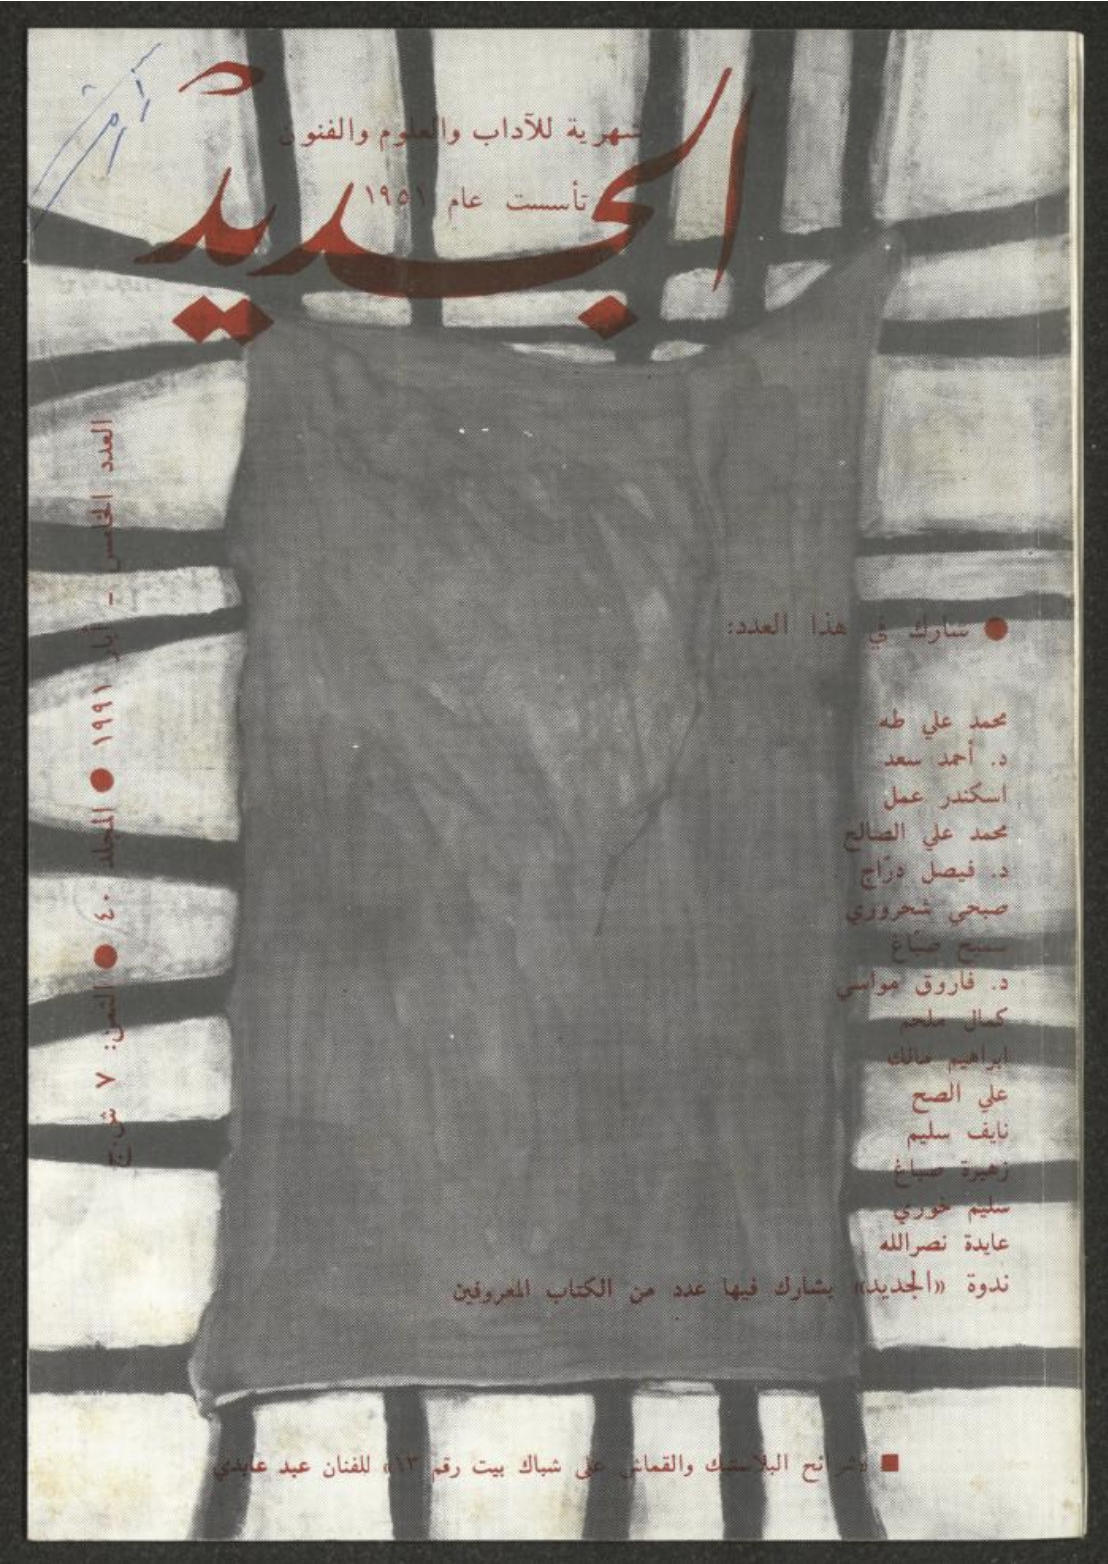 شهرية للآداب والعلوم والفنون
الجديد
تأسست عام ١٩٥١
العدد الخامس - أيار ١٩٩١ ● المجلد ٤٠ ● الثمن: ٧ ش.ج
● شارك في هذا العدد:
محمد علي طه
د. أحمد سعد
اسكندر عمل
محمد علي الصالح
د. فيصل درّاج
صبحي شحروري
سميح صبّاغ
د. فاروق مواسي
كمال ملحم
ابراهيم مالك
علي الصح
نايف سليم
زهيرة صباغ
سليم خوري
عايدة نصرالله
ندوة «الجديد» يشارك فيها عدد من الكتاب المعروفين
■ «شرائح البلاستيك والقماش على شباك بيت رقم ١٣» للفنان عبد عابدي